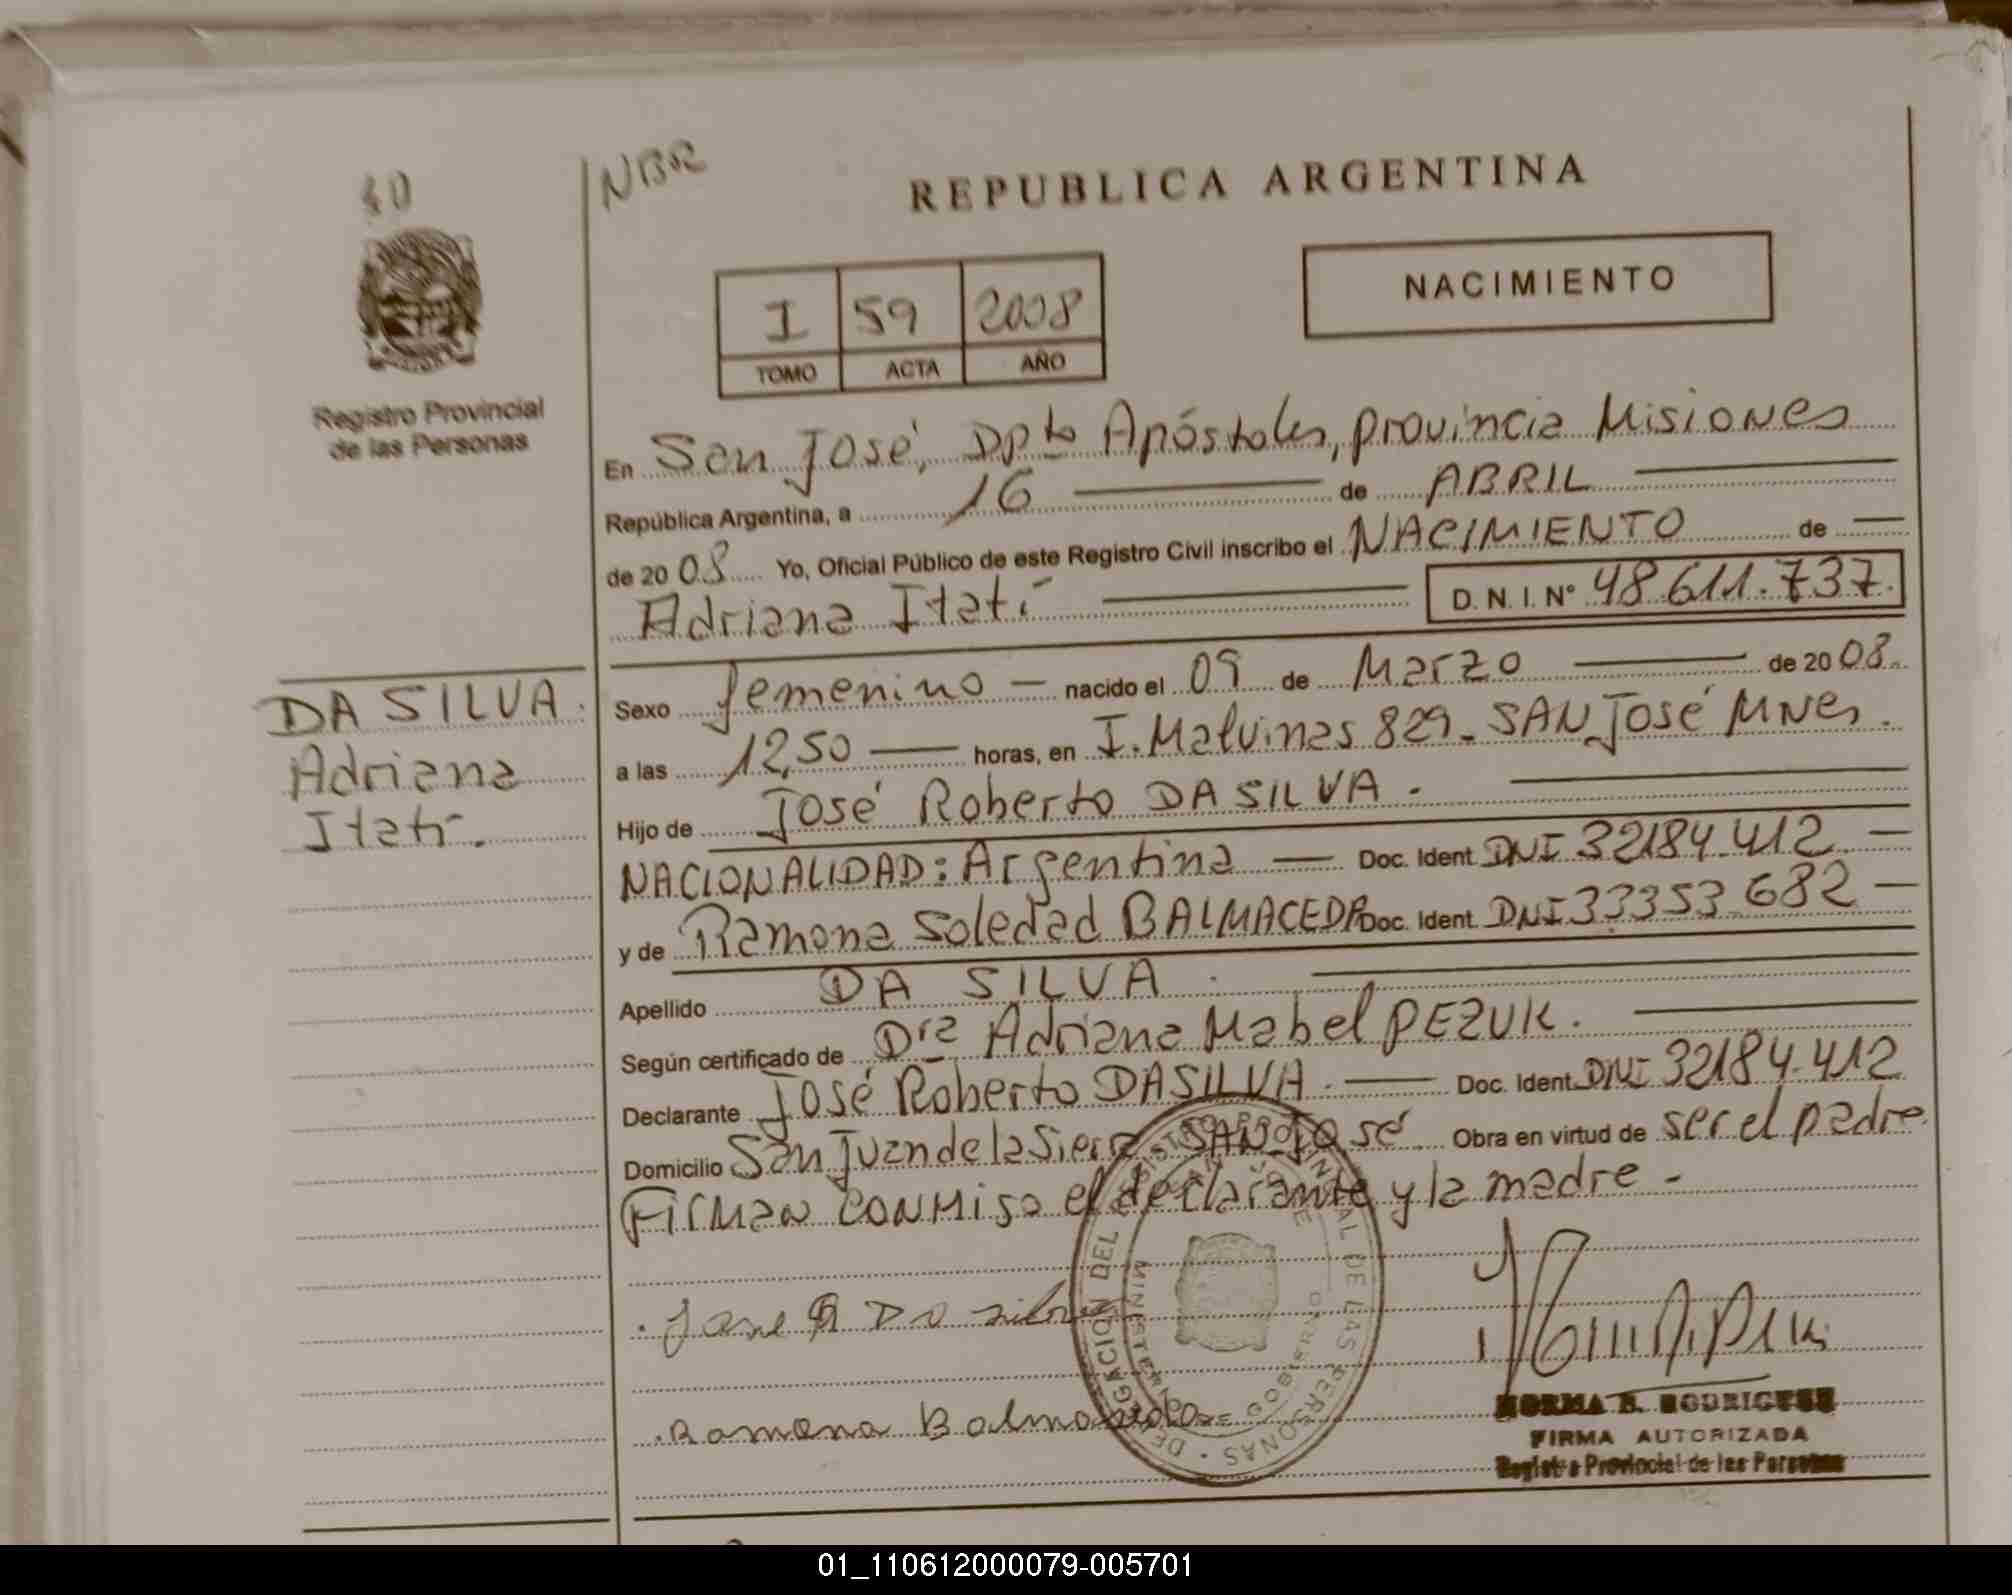 40
NBR
REPUBLICA ARGENTINA
NACIMIENTO
I 59 2008
TOMO ACTA AÑO
Registro Provincial
de las Personas
En San José, Dpto Apóstoles, provincia Misiones
República Argentina, a 16 de ABRIL
de 2008 Yo, Oficial Público de este Registro Civil inscribo el NACIMIENTO de
Adriana Itatí D.N.I. Nº 48.611.737.
DA SILVA.
Adriana
Itatí.
Sexo femenino nacido el 09 de Marzo de 2008.
a las 12,50 horas, en I. Malvinas 829_ SAN José Mnes.
Hijo de José Roberto DA SILVA.
NACIONALIDAD: Argentina Doc. Ident. DNI 32184.412
y de Ramona Soledad BALMACEDA Doc. Ident. DNI 33353 682
Apellido DA SILVA.
Según certificado de Dra Adriana Mabel PEZUK.
Declarante José Roberto DA SILVA. Doc. Ident. DNI 32184.412
Domicilio San Juan de la Sierra - SAN José Obra en virtud de ser el padre.
Firman conmigo el declarante y la madre -
Jose R Da silva
Ramona Balmaceda
DELEGACION DEL REGISTRO PROVINCIAL DE LAS PERSONAS
MINISTERIO DE GOBIERNO
SAN JOSE
NORMA B. RODRIGUEZ
FIRMA AUTORIZADA
Registro Provincial de las Personas
01_110612000079-005701